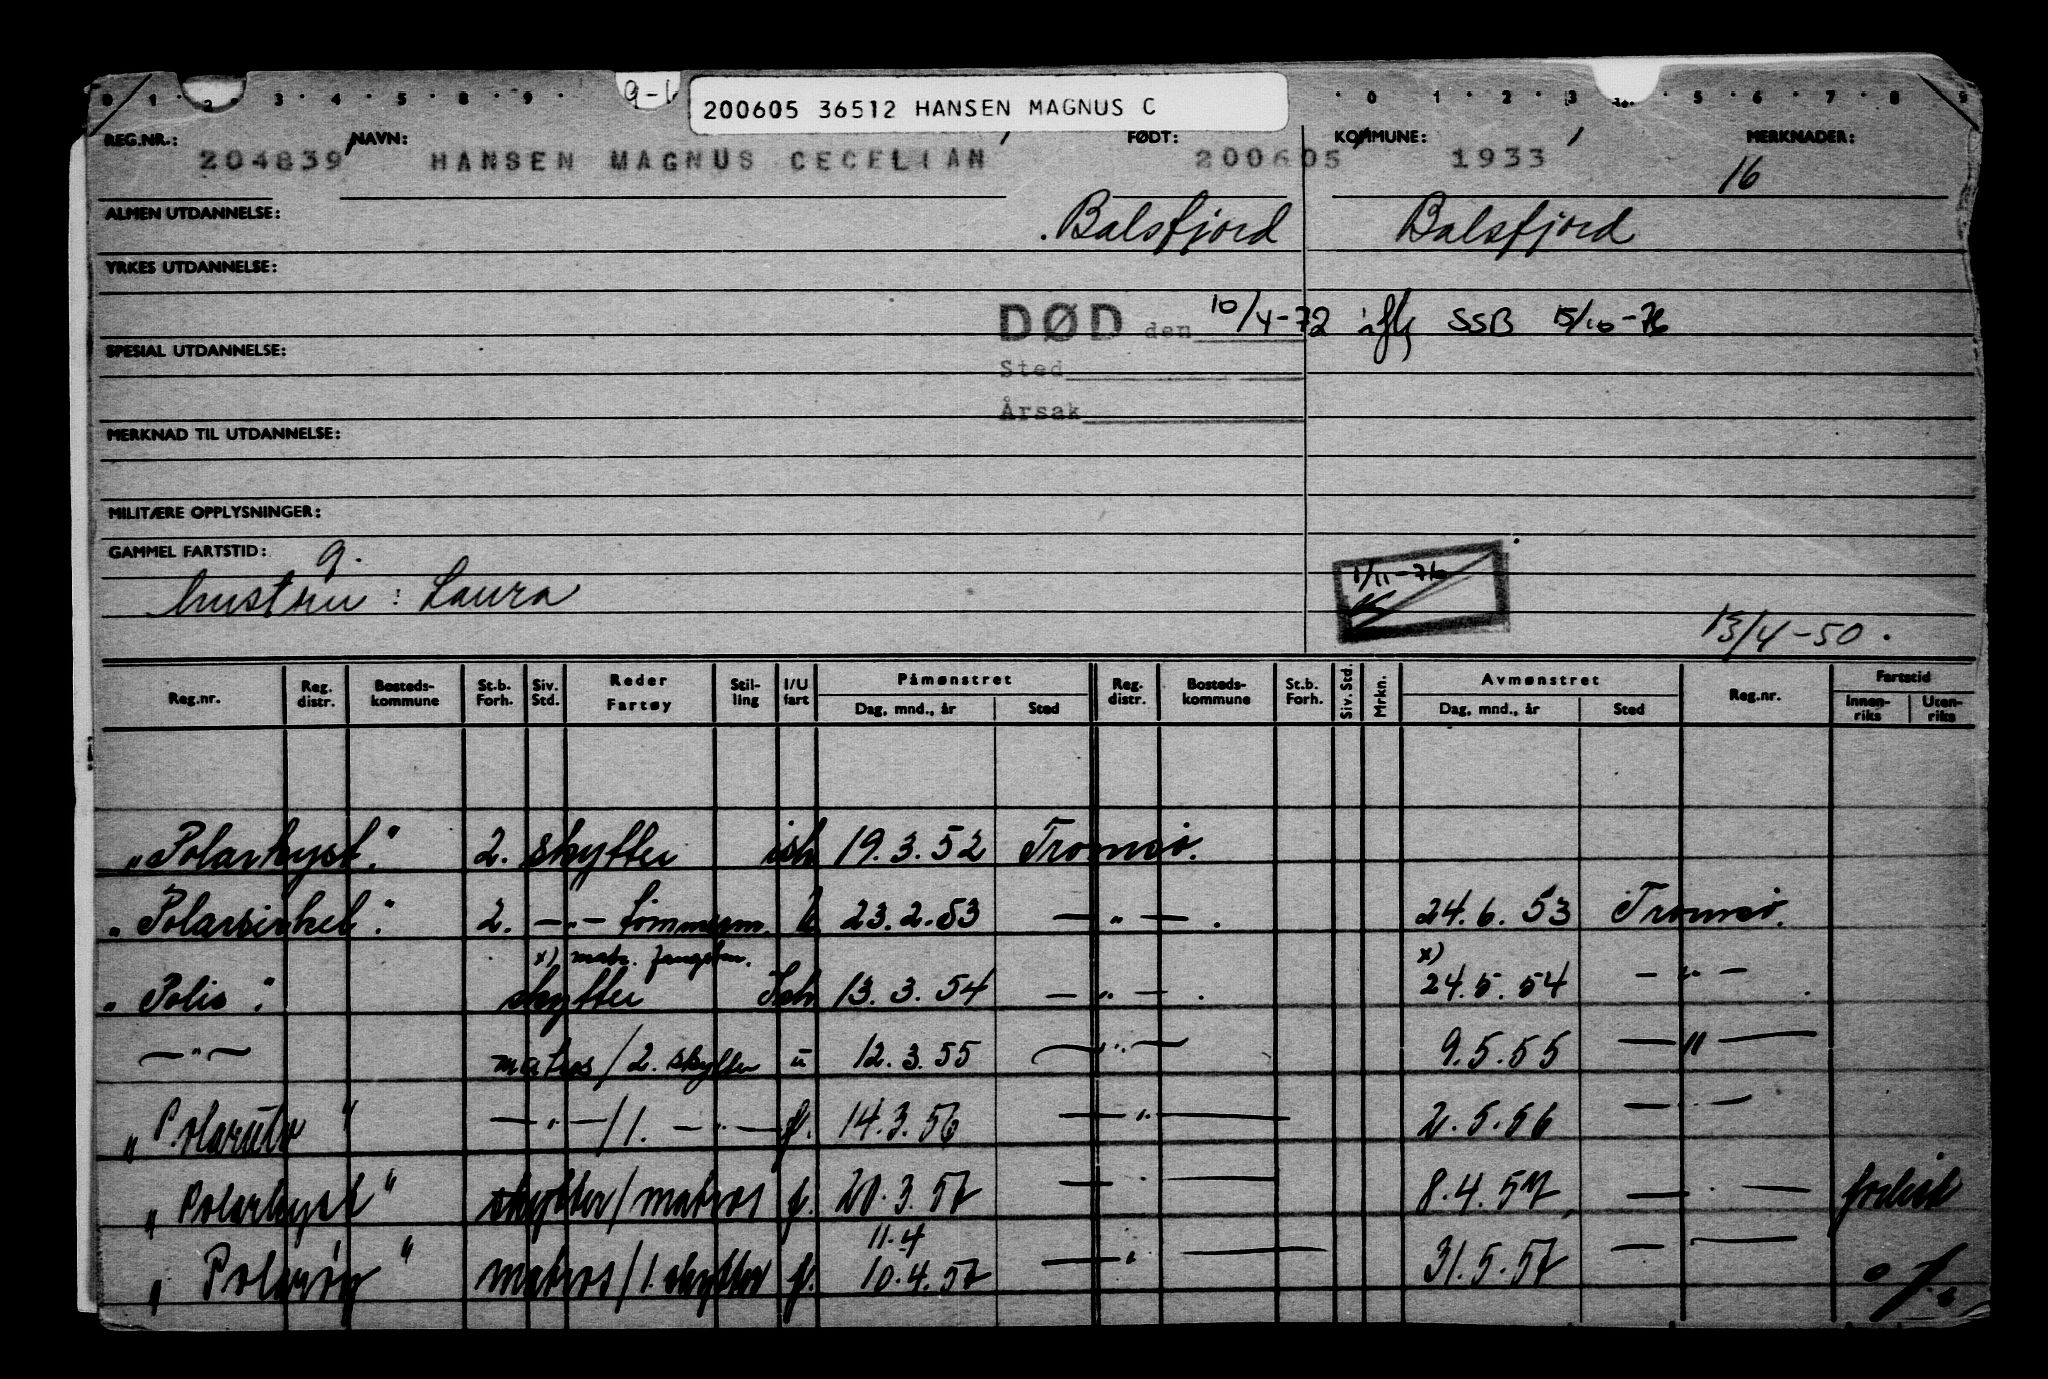 0 1 2 3 4 5 8 9 9-
0 1 2 3 5 6 7 8 9
200605 36512 HANSEN MAGNUS C
REG.NR.: NAVN: FØDT: KOMMUNE: MERKNADER:
204839 HANSEN MAGNUS CECELIAN 200605 1933 16
ALMEN UTDANNELSE: Balsfjord Balsfjord
YRKES UTDANNELSE:
DØD den 10/4-72 iflg SSB 15/10-76
SPESIAL UTDANNELSE:
Sted
Årsak
MERKNAD TIL UTDANNELSE:
MILITÆRE OPPLYSNINGER:
GAMMEL FARTSTID:
g.
hustru: Laura
1/11-76
13/4-50.
Reg.nr. Reg. distr. Bosteds-kommune St.b. Forh. Siv. Std. Reder Fartøy Stil-ling I/U fart Påmønstret Dag, mnd., år Sted Reg. distr. Bosteds-kommune St.b. Forh. Siv. Std. Mrkn. Avmønstret Dag, mnd., år Sted Reg.nr. Fartstid Innen-riks Uten-riks
"Polarhyst." 2. skytter ish 19.3.52 Tromsø.
"Polarsirkel." 2. —"— tømmerm. U 23.2.53 —"—. 24.6.53 Tromsø.
x) matr. fangstm. x)
"Polis". skytter Ish 13.3.54 —"—. 24.5.54 —"—.
—"— matros/2. skytter u 12.3.55 —"— 9.5.55 —"—
"Polarulv" —"—/1. —"— f. 14.3.56 —"— 2.5.56 —"—
"Polarhyst" skytter/matros f. 20.3.57 —"— 8.4.57, —"— forlist
11.4
"Polarøy" matros/1. skytter f. 10.4.57 —"— 31.5.57 —"—